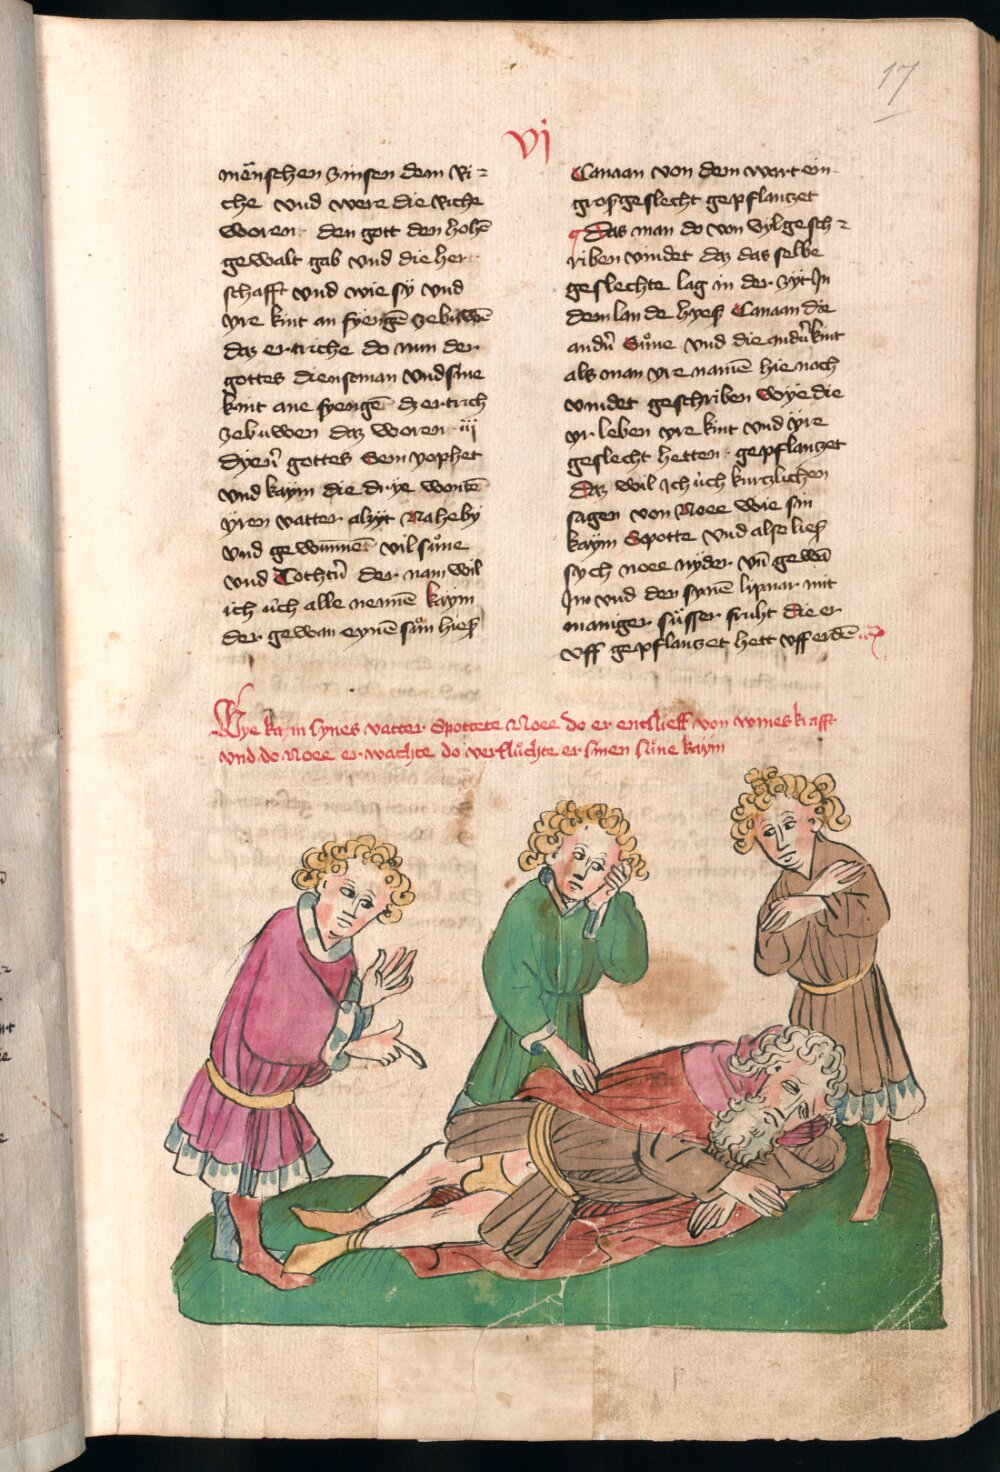 17
vj
mēnschen zinsen dem Ri⸗
che vnd were die Riche
woren den gott den hohē
gewalt gab vnd die her
schafft vnd wie sÿ vnd
yre kint an fyengē zebuwē
daz ertriche do nun der
gottes dienstman vnd sine
kint ane fyengē dz ertrich
zebuwen daz woren iij
gottes Sem yophet
vnd kaÿm die drÿe wontē
ÿren vatter alzÿt Nahe bÿ
vnd gewunnēt vil sůne
vnd Tochter der nam wil
ich üch alle nennē kaÿm
der gewan eynē sůn hies
Canaan von dem wart ein
gros geslecht gepflantzet
Das man do von vylgesch⸗
riben vindet daz das selbe
geslechte lag in der zÿt Jn
dem lande hyes Canaan die
Sůne vnd die kint
als man yre namē hie noch
vindet geschriben wÿe die
yr leben yre kint vnd ÿre
geslecht hetten gepflantzet
Daz wil ich üch kurtzlichen
sagen von Noee wie sin
kaÿm Spotte vnd alse lies
sych noee nyder vn̄ gewā
Jm vnd den synē lipnar mit
maniger sůsser fruht die er
vff gepflantzet hett vff erdē
Wye kaym synes vatter Spottete Noee do er entslieff von wines krafft
vnd do Noee erwachte do verflůchte er sinen sůne kaÿm